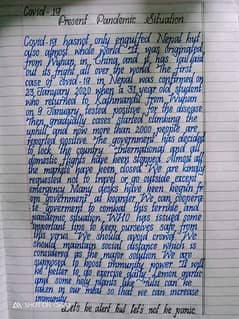 Covid-19
Present Pandemic Situation
Covid-19 hasnot only engulfed Nepal but
also almost whole world. It was originated
from Wuhan, in China, and it has laid
out its fright all over the world. The first
case of covid-19 in Nepal was confirmed on
23 January 2020 when a 31 year old student
who returned to Kathmandu from Wuhan
on 9 January, tested positive for the disease
Then gradually cases started climbing the
uphill and now more than 2000 people are
reported positive. The government has decided
to lock the country. International and all
domestic flights have been stopped. Almost all
the markets have been closed. We are kindly
requested not to travel or go outside except
emergency. Many desks have been begun
from government at boarder. We can cooperate
government to combat this terrible and
pandemic situation. WHO has issued some
important tips to keep ourselves safe from
this virus. We should avoid crowd. We
should maintain social distance which is
considered as the major solution. We are
supposed to boost immunity power. It will
be better to do exercise daily. Lemon, garlic
and some holy plants like Tulsi can be
taken in our meal so that we can increase
immunity.
Let's be alert but let's not be panic.
SHOT ON